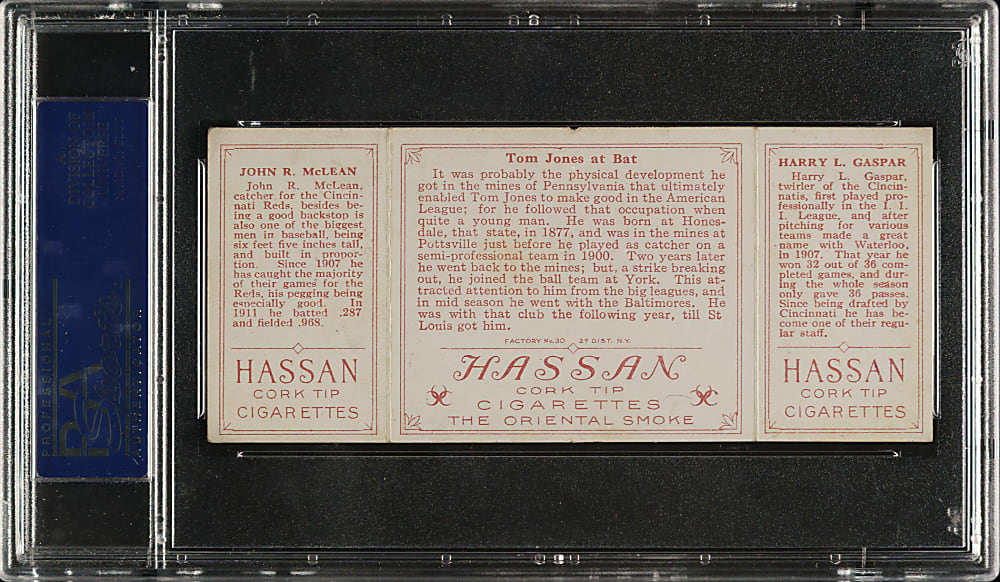 JOHN R. McLEAN
John R. McLean,
catcher for the Cincin-
nati Reds, besides be-
ing a good backstop is
also one of the biggest
men in baseball, being
six feet five inches tall,
and built in propor-
tion. Since 1907 he
has caught the majority
of their games for the
Reds, his pegging being
especially good. In
1911 he batted .287
and fielded .968.
HASSAN
CORK TIP
CIGARETTES
Tom Jones at Bat
It was probably the physical development he
got in the mines of Pennsylvania that ultimately
enabled Tom Jones to make good in the American
League; for he followed that occupation when
quite a young man. He was born at Hones-
dale, that state, in 1877, and was in the mines at
Pottsville just before he played as catcher on a
semi-professional team in 1900. Two years later
he went back to the mines; but, a strike breaking
out, he joined the ball team at York. This at-
tracted attention to him from the big leagues, and
in mid season he went with the Baltimores. He
was with that club the following year, till St
Louis got him.
FACTORY No. 30 2d DIST. N.Y.
HASSAN
CORK TIP
CIGARETTES
THE ORIENTAL SMOKE
HARRY L. GASPAR
Harry L. Gaspar,
twirler of the Cincin-
natis, first played pro-
fessionally in the I. I.
I. League, and after
pitching for various
teams made a great
name with Waterloo,
in 1907. That year he
won 32 out of 36 com-
pleted games, and dur-
ing the whole season
only gave 36 passes.
Since being drafted by
Cincinnati he has be-
come one of their regu-
lar staff.
HASSAN
CORK TIP
CIGARETTES
PROFESSIONAL
PSA
AUTHENTICATOR